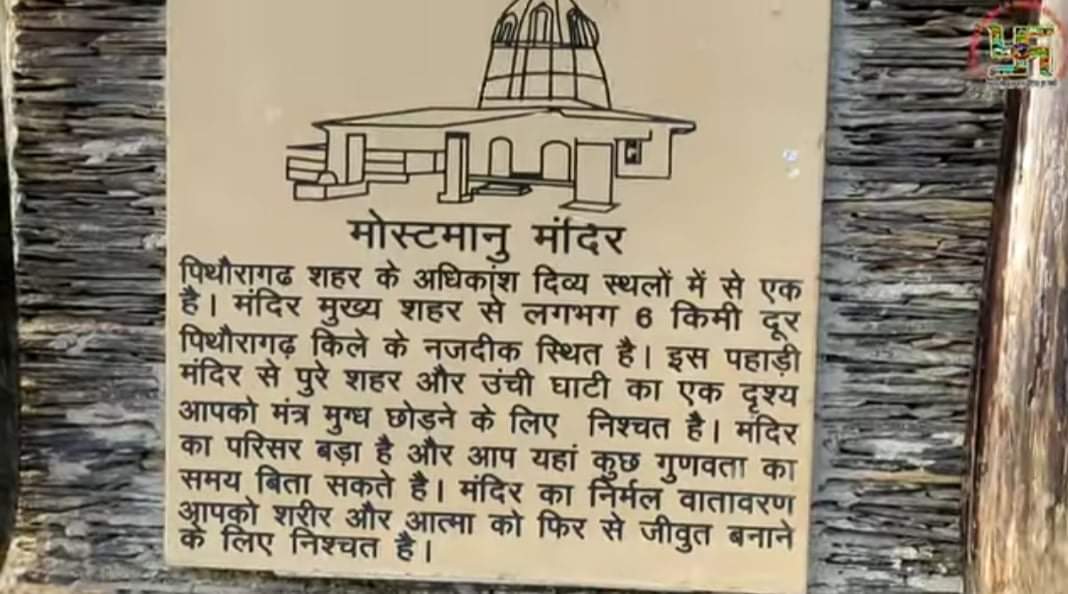 मोस्टमानु मंदिर
पिथौरागढ शहर के अधिकांश दिव्य स्थलों में से एक
है। मंदिर मुख्य शहर से लगभग 6 किमी दूर
पिथौरागढ़ किले के नजदीक स्थित है। इस पहाड़ी
मंदिर से पुरे शहर और उंची घाटी का एक दृश्य
आपको मंत्र मुग्ध छोड़ने के लिए निश्चत है। मंदिर
का परिसर बड़ा है और आप यहां कुछ गुणवता का
समय बिता सकते है। मंदिर का निर्मल वातावरण
आपको शरीर और आत्मा को फिर से जीवुत बनाने
के लिए निश्चत है।